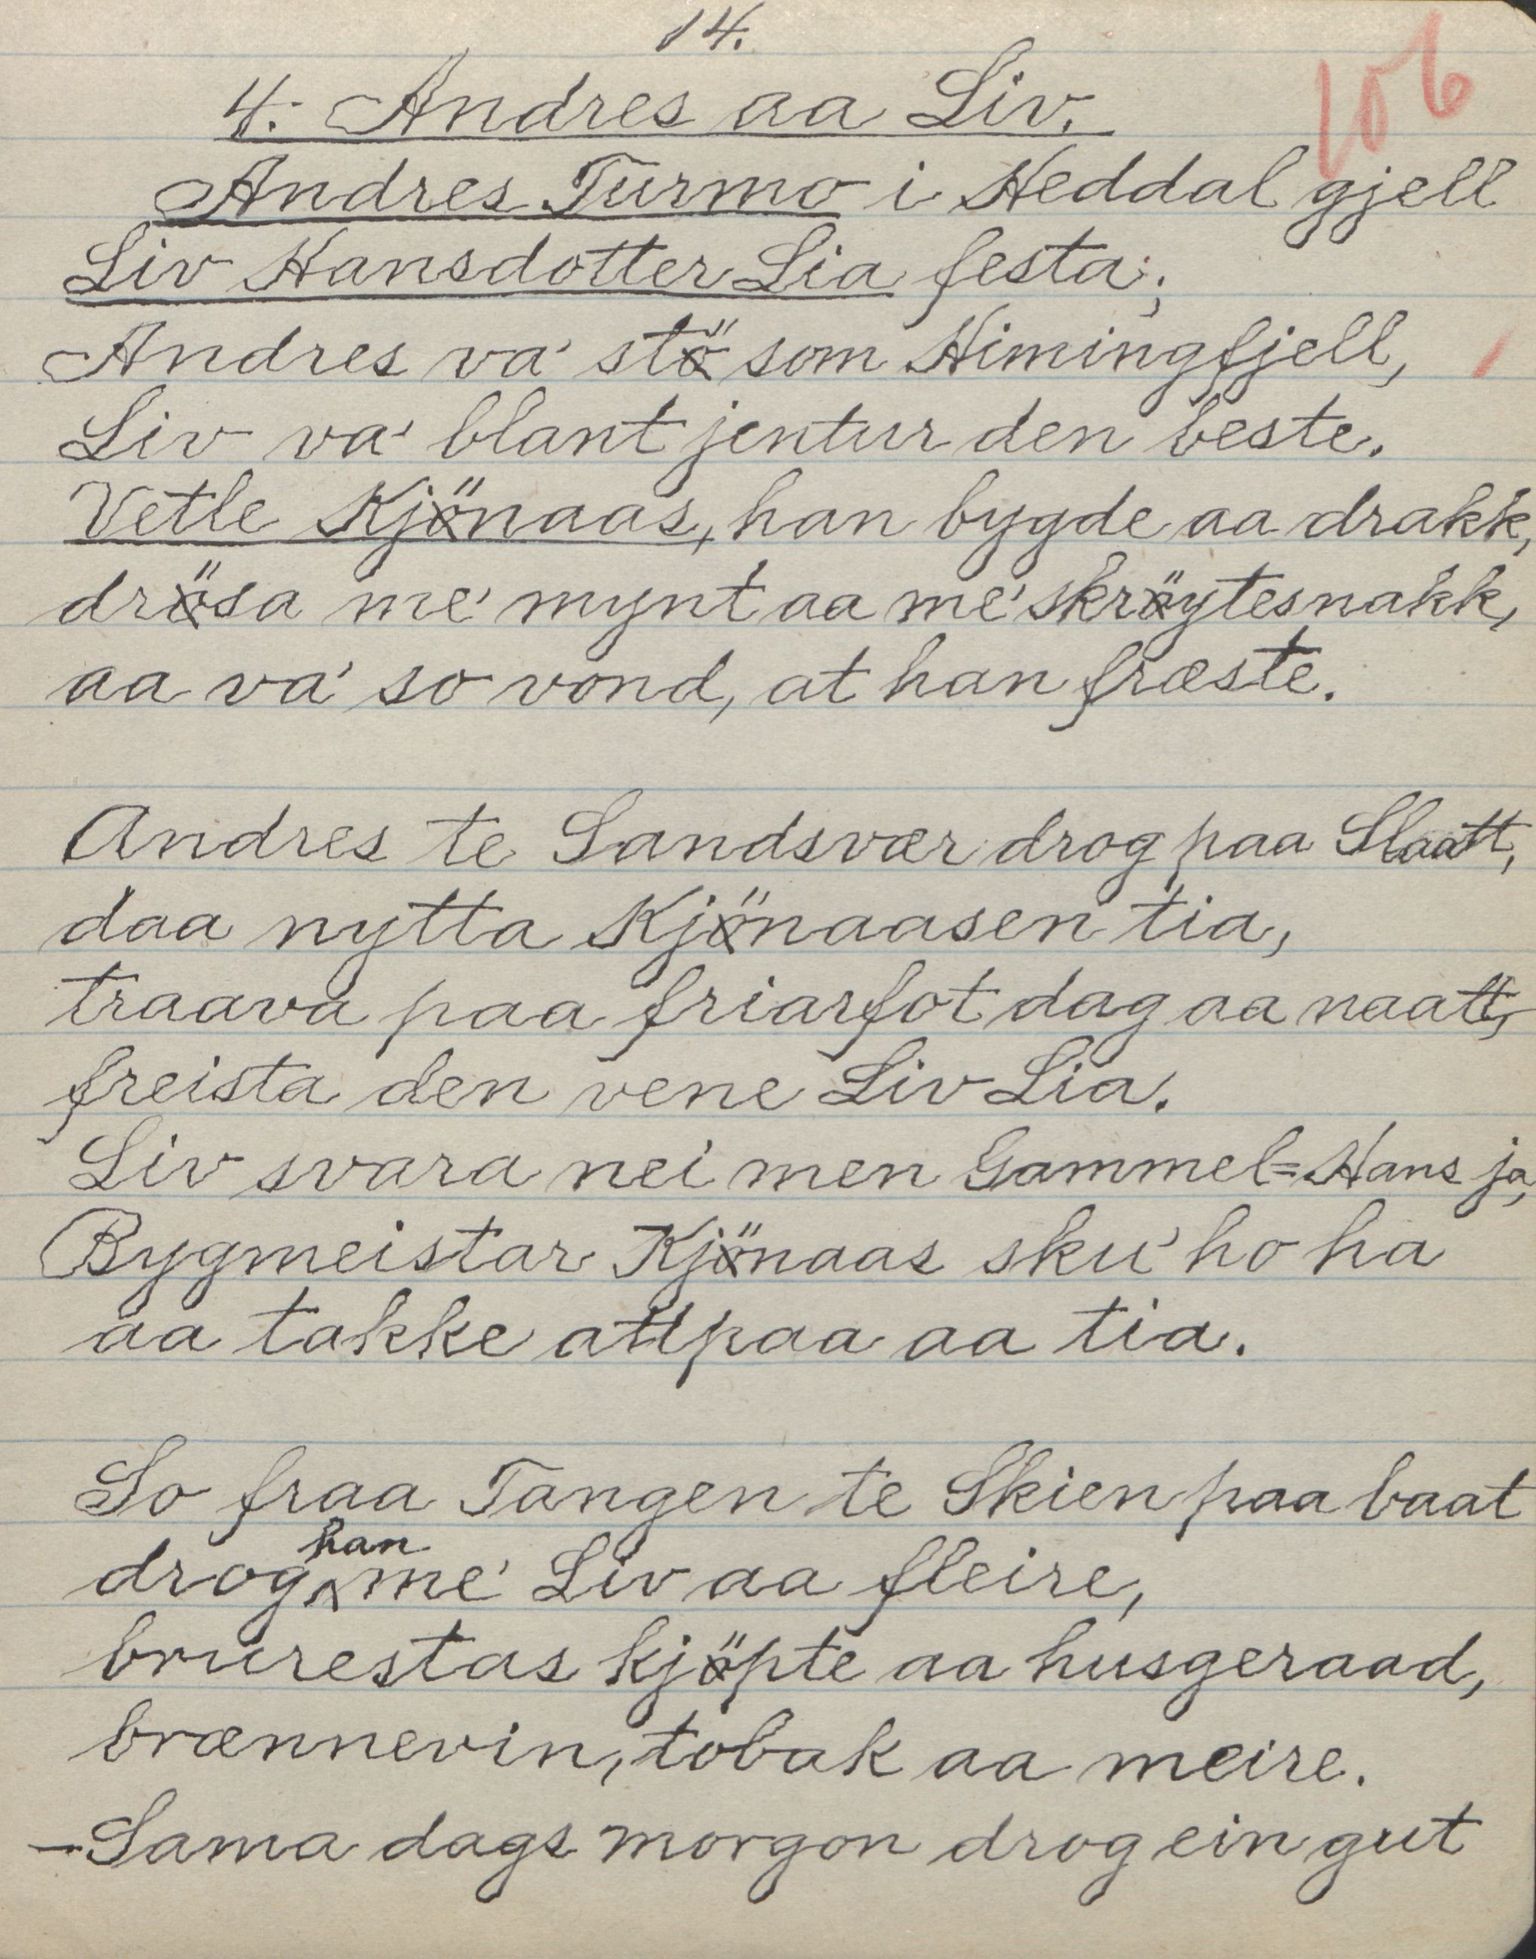 14.
106
4. Andres aa Liv.
Andres Turmo i Heddal gjell
Liv Hansdotter Lia festa;
Andres va' stö som Himingfjell,
Liv va' blant jentur den beste.
Vetle Kjönaas, han bygde aa drakk,
drösa me' mynt aa me' skröytesnakk,
aa va' so vond, at han fræste.

Andres te Sandsvær drog paa Slaatt,
daa nytta Kjönaasen tia,
traava paa friarfot dag aa naatt,
freista den vene Liv Lia.
Liv svara nei men Gammel=Hans ja,
Bygmeistar Kjönaas sku' ho ha
aa takke attpaa aa tia.

So fraa Tangen te Skien paa baat
drog han me' Liv aa fleire,
brurestas kjöpte aa husgeraad,
brænnevin, tobak aa meire.
– Sama dags morgon drog ein gut